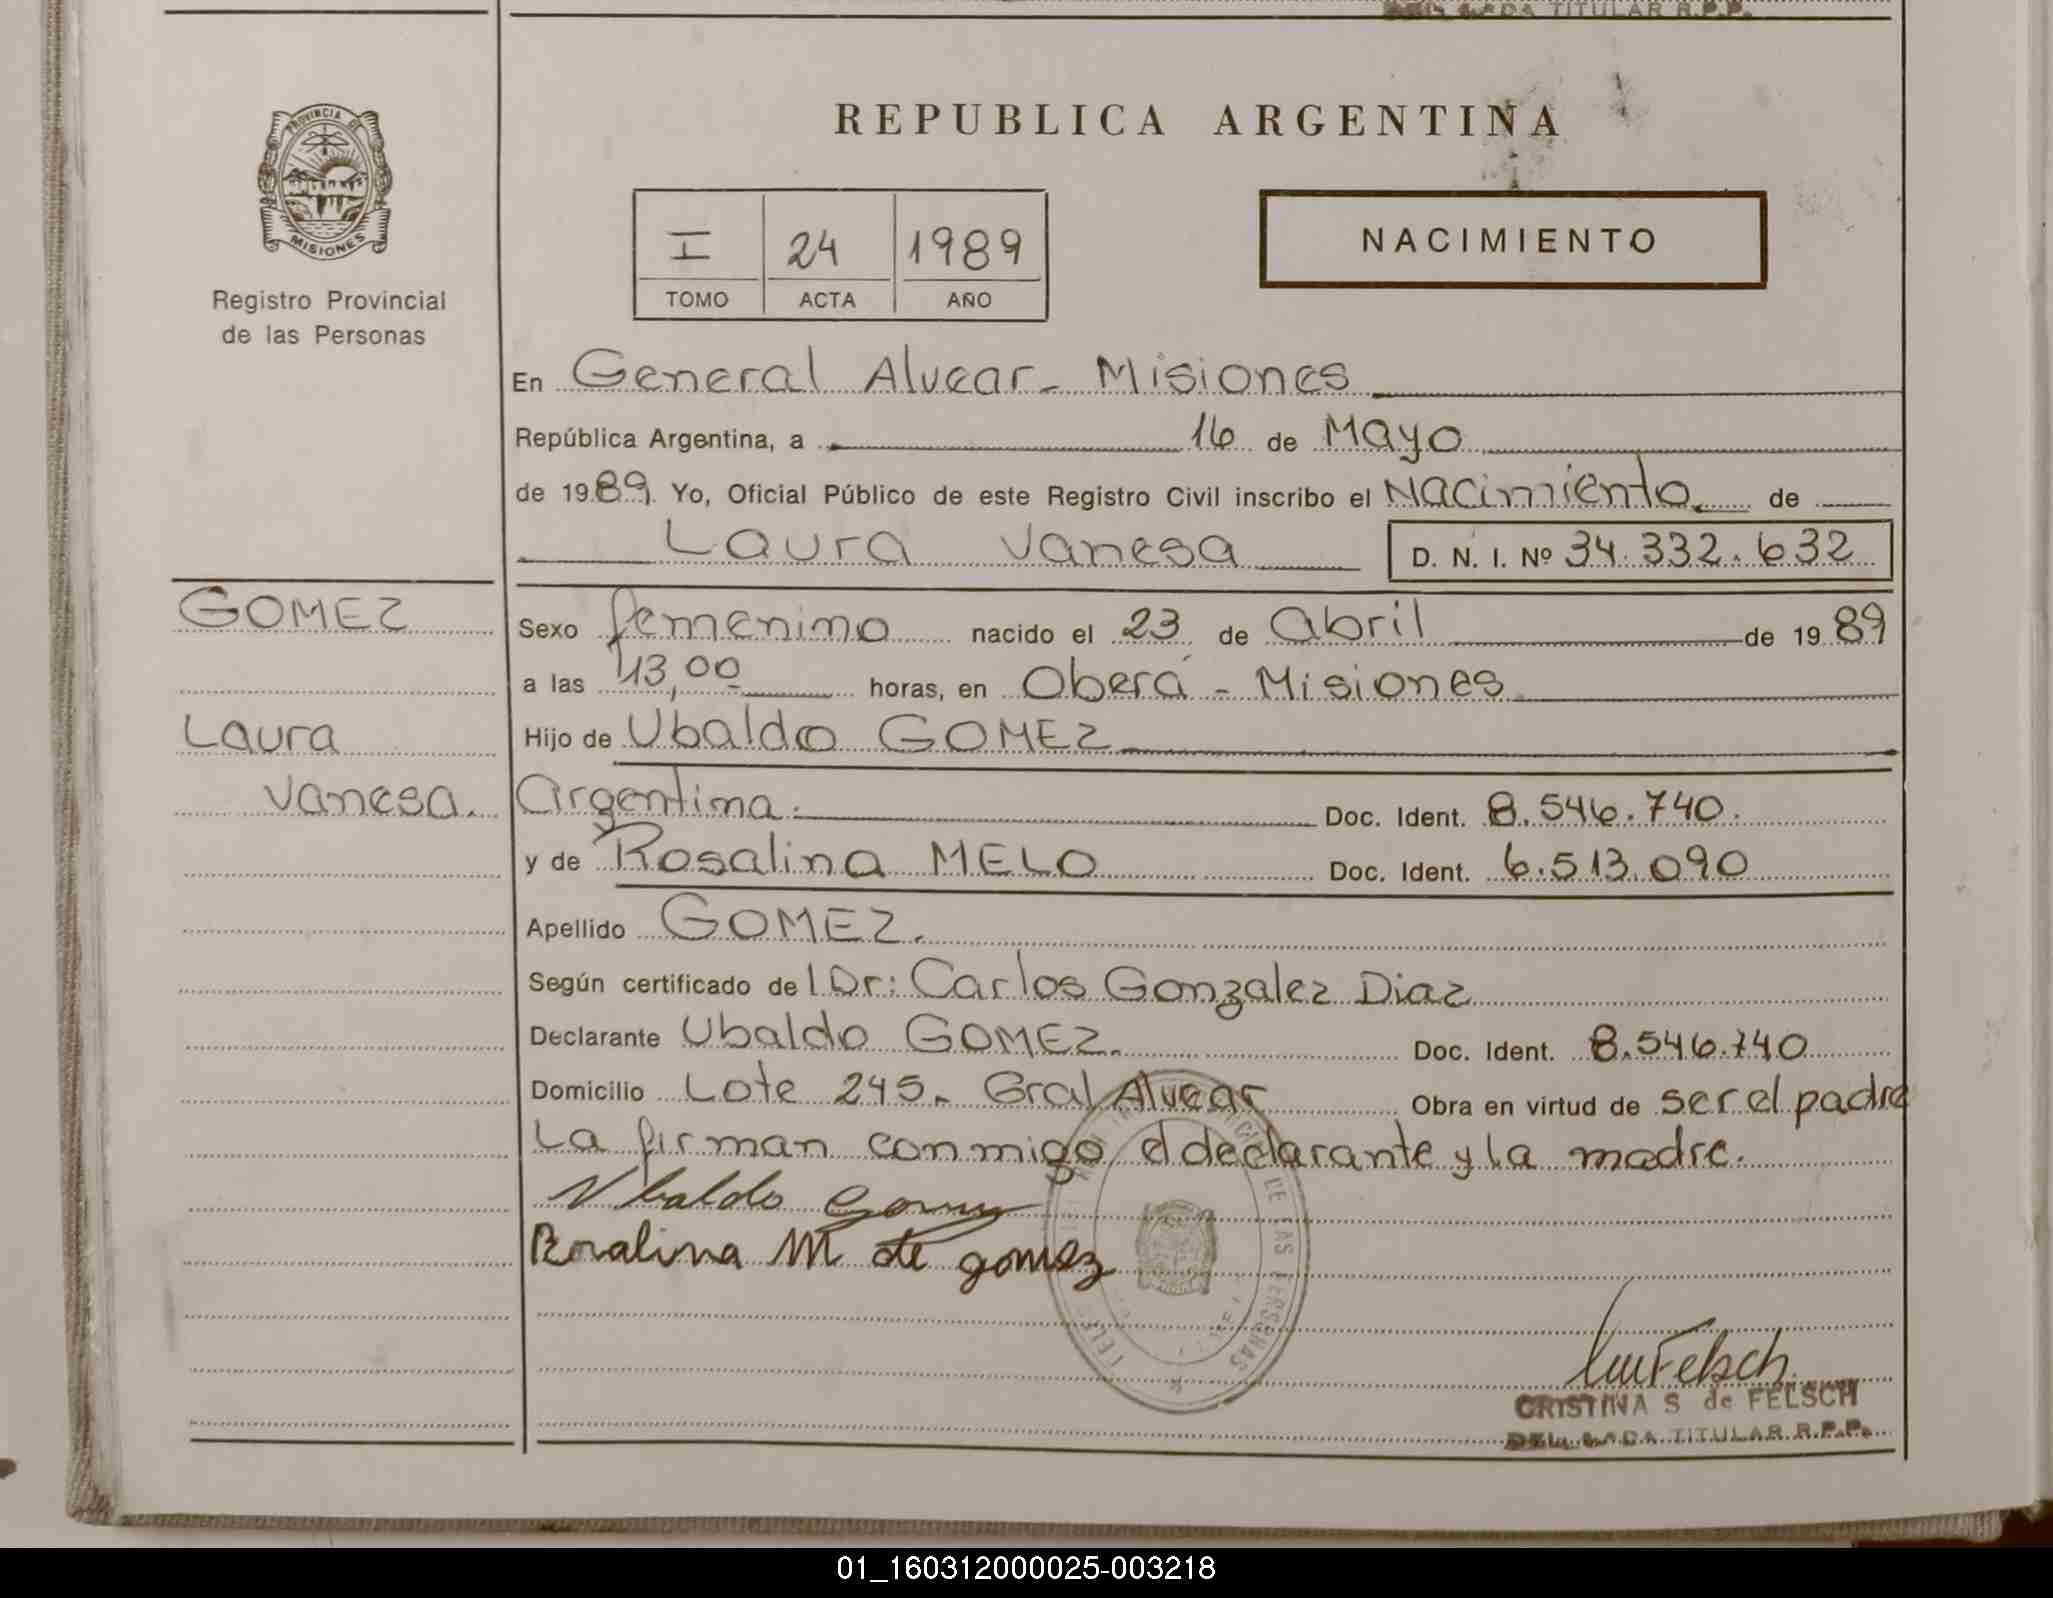 TITULAR R.P.P.
PROVINCIA DE
MISIONES
Registro Provincial
de las Personas
REPUBLICA ARGENTINA
I 24 1989
TOMO ACTA AÑO
NACIMIENTO
En General Alvear - Misiones
República Argentina, a 16 de Mayo
de 1989. Yo, Oficial Público de este Registro Civil inscribo el Nacimiento de
Laura Vanesa D. N. I. Nº 34.332.632
GOMEZ
Laura
Vanesa.
Sexo femenino nacido el 23 de abril de 1989
a las 13,00 horas, en Oberá - Misiones
Hijo de Ubaldo GOMEZ
argentina. Doc. Ident. 8.546.740.
y de Rosalina MELO Doc. Ident. 6.513.090
Apellido GOMEZ.
Según certificado de l Dr: Carlos Gonzalez Diaz
Declarante Ubaldo GOMEZ. Doc. Ident. 8.546.740
Domicilio Lote 245. Gral Alvear Obra en virtud de ser el padre
La firman conmigo el declarante y la madre.
Ubaldo Gomez
Rosalina M de gomez
DE LAS PERSONAS
Felsch
CRISTINA S de FELSCH
TITULAR R.P.P.
01_160312000025-003218